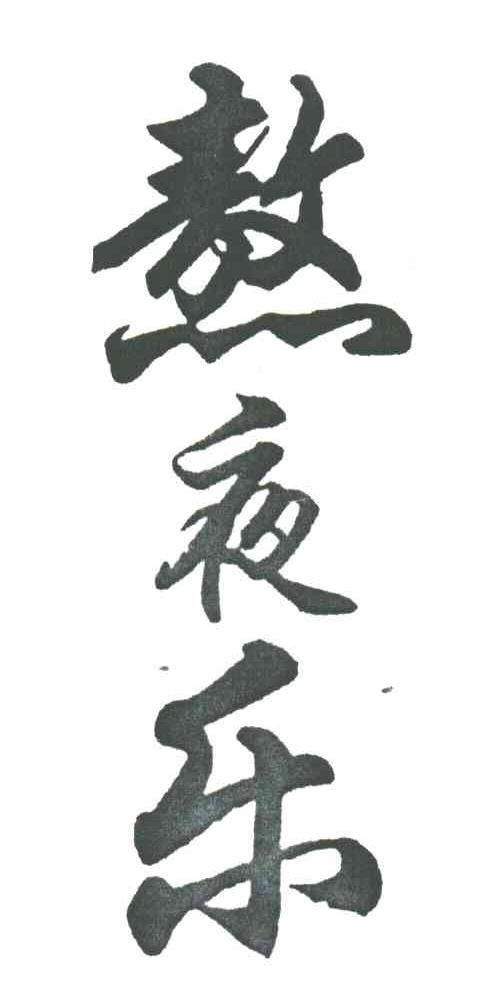 熬夜乐